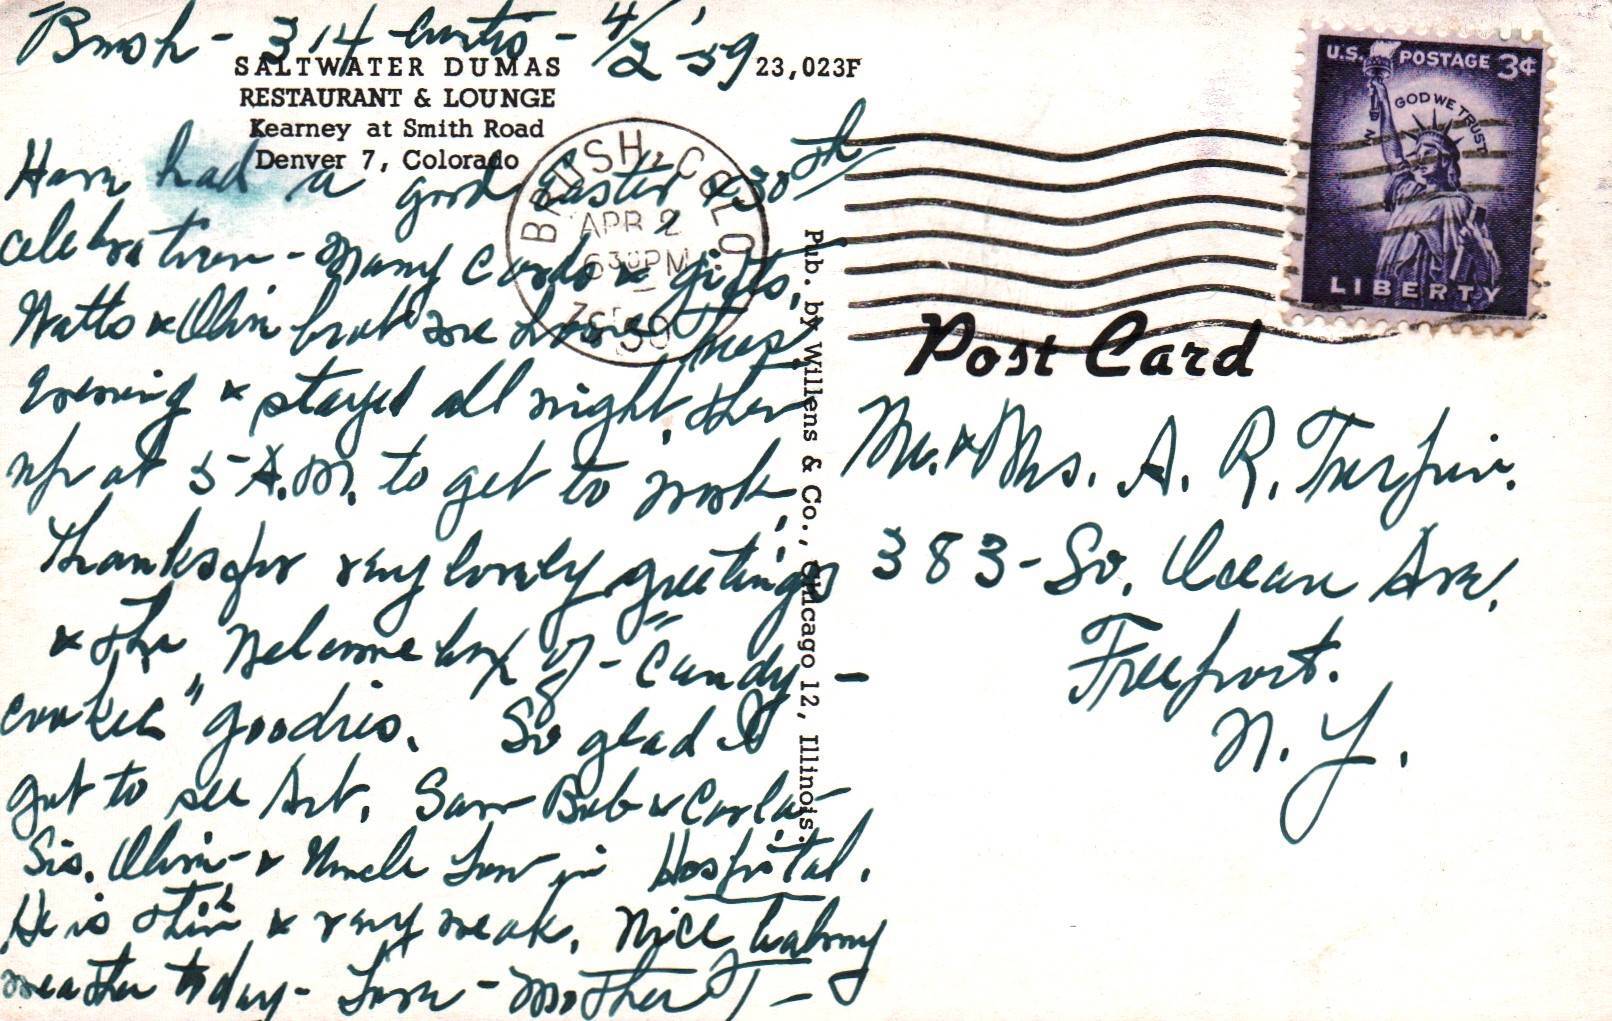 Brush - 314 Curtis - 4/2 '59
SALTWATER DUMAS
RESTAURANT & LOUNGE
Kearney at Smith Road
Denver 7, Colorado
23,023F
Have had a good Easter & 30th
celebration - Many Cards & gifts.
Watts & Olive brot me home Tues
Evening & stayed all night, then
up at 5 A.M. to get to work.
Thanks for very lovely greetings
& the "Welcome box of - "Candy -
cookies" goodies. So glad I
got to see Art. Saw Bob & Carla -
Sis. Olive - & Uncle Lew in Hospital.
He is thin & very weak. Nice balmy
weather today - Love - Mother T -
Pub. by Willens & Co., Chicago 12, Illinois.
BRUSH, COLO
APR 2
630PM
U.S. POSTAGE 3¢
IN GOD WE TRUST
LIBERTY
Post Card
Mr. & Mrs. A. R. Turpin.
383 - So. Ocean Ave.
Freeport.
N. Y.